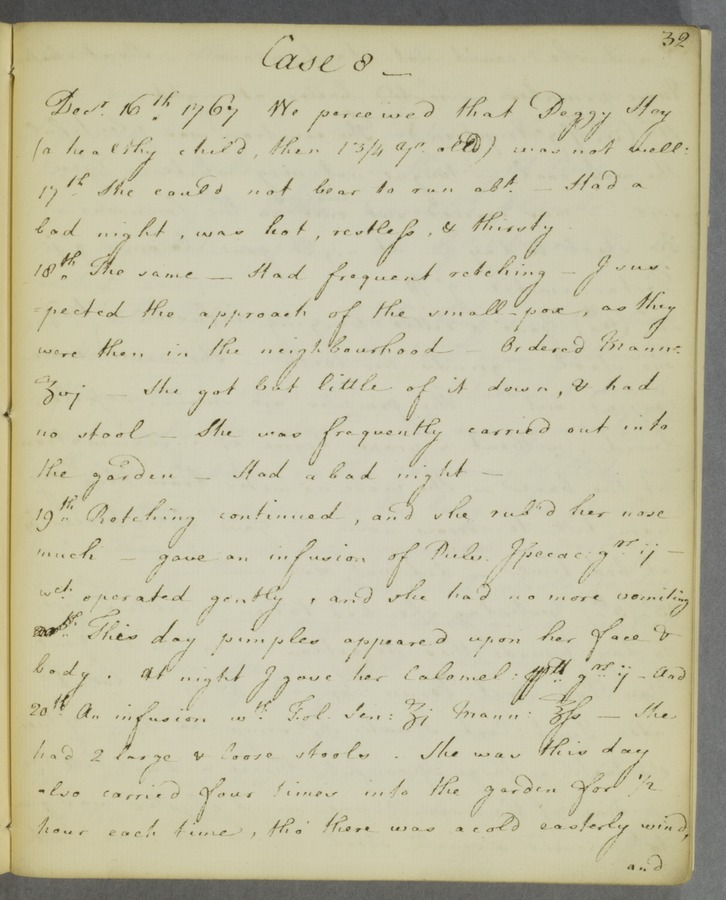 32
Case 8 —
Decr. 16th. 1767 We perceived that Peggy Hay
(a healthy child, then 1 3/4 yr. old) was not well:
17th She could not bear to run abt. — Had a
bad night, was hot, restless, & thirsty
18th. The same — Had frequent retching — I sus-
-pected the approach of the small-pox, as they
were then in the neighbourhood — Ordered Mann:
ʒvj — She got but little of it down, & had
no stool — She was frequently carried out into
the garden — Had a bad night —
19th. Retching continued, and she rub'd her nose
much — gave an infusion of Pulv. Ipecac: grs. ij —
wch. operated gently, and she had no more vomiting
This day pimples appeared upon her face &
body. At night I gave her Calomel: grs. ij — And
20th. An infusion wth. Fol: Sen: ʒj Mann: ℥ss — She
had 2 large & loose stools. She was this day
also carried four times into the garden for 1/2
hour each time, tho' there was a cold easterly wind,
and